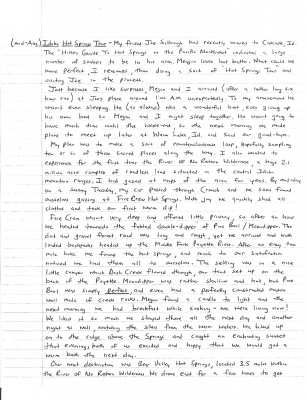 (mid-Aug) Idaho Hot Springs Tour - My friend Joe Sciborga had recently moved to Cascade, Id.
The "Hikers Guide To Hot Springs in the Pacific Northwest" indicates a large
number of soakers to be in his area, Megan loves hot baths. What could be
more perfect, I reasoned, than doing a sort of Hot Springs Tour and
visiting Joe in the process.
Just because I like surprises, Megan and I arrived (after a rather long six
hour ride) at Joe's place around 1:00 A.M. unexpectedly. To my amazement he
wasn't even sleeping. He (as always) was a wonderful host, even giving up
his own bed so Megan and I might sleep together. He wasn't going to
have much time until the weekend so the next morning we made
plans to meet up later at Warm Lake, Id. and said our good-byes.
My plan was to make a sort of counterclockwise loop, hopefully sampling
ten or so of these sacred places along the way. I also wanted to
experience for the first time the River Of No Return Wilderness, a huge 2.1
million acre complex of roadless land situated in the central Idaho
mountain ranges. I had gazed at maps of the area for years. By mid-day
on a sunny Thursday, my car passed through Crouch and we soon found
ourselves gazing at Fire Crew Hot Springs. With joy we quickly shed all
clothes and took our first warm dip!
Fire Crew wasn't very deep and offered little privacy, so after an hour
we headed towards the fabled double-dipper of Pine Burl / Moondipper. The
dirt and gravel forest road was long and rough, yet we arrived and with
loaded backpacks headed up the Middle Fork Payette River. After an easy two
mile hike we found the hot springs, and much to our satisfaction
noticed we had them all to ourselves. The setting was in a nice
little canyon which Dash Creek flowed through, our tent set up on the
bank of the Payette. Moondipper was rather shallow and hot, but Pine
Burl was simply perfect, and deep, had a perfectly constructed masonry
wall made of creek rocks. Megan found a candle to light and the
next morning we had breakfast while soaking - we were living now!
We liked it so much we stayed there all the next day and another
night as well, watching the stars from the warm waters. We hiked up
on to the ridge above the Springs and caught an enchanting sunset
that evening, both of us excited and happy that we would get a
warm bath the next day.
Our next destination was Bear Valley Hot Springs, located 3.5 miles within
the River of No Return Wilderness. We drove east for a few hours to get